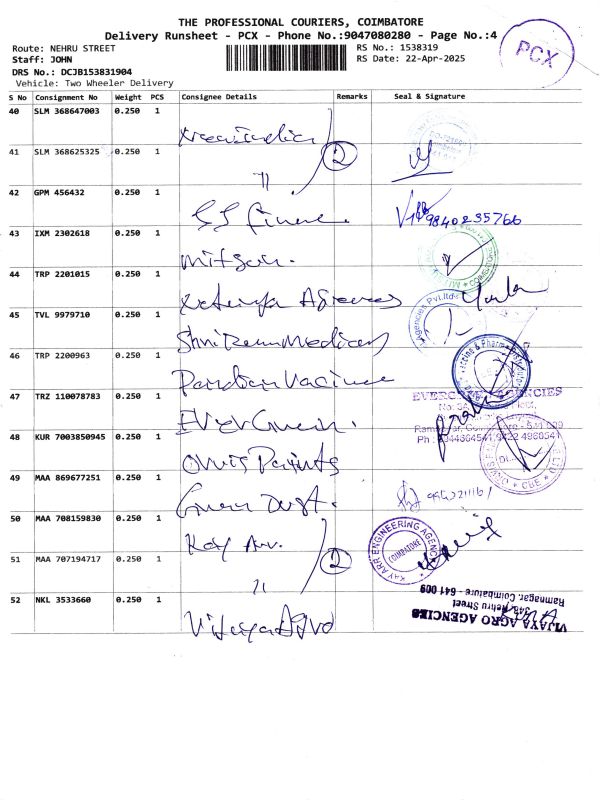 THE PROFESSIONAL COURIERS, COIMBATORE
Delivery Runsheet - PCX - Phone No.:9047080280 - Page No.:4
Route: NEHRU STREET
Staff: JOHN
DRS No.: DCJB153831904
Vehicle: Two Wheeler Delivery
RS No.: 1538319
RS Date: 22-Apr-2025
PCX
S No Consignment No Weight PCS Consignee Details Remarks Seal & Signature
40 SLM 368647003 0.250 1
41 SLM 368625325 0.250 1 " 2
42 GPM 456432 0.250 1 9840235766
43 IXM 2302618 0.250 1 Mitsun.
44 TRP 2201015 0.250 1
45 TVL 9979710 0.250 1 Medicas
Agencies Pvt.Ltd
46 TRP 2200963 0.250 1 Pandian Vaccine
47 TRZ 110078783 0.250 1 Ever Green.
EVERGREEN AGENCIES
48 KUR 7003850945 0.250 1 Paints
49 MAA 869677251 0.250 1 Green Dust.
50 MAA 708159830 0.250 1 Kay Arr.
KAY ARR ENGINEERING AGENCY
COIMBATORE
51 MAA 707194717 0.250 1 " 2
52 NKL 3533660 0.250 1 Vijaya Agro
VIJAYA AGRO AGENCIES
348, Nehru Street
Ramnagar, Coimbatore - 641 009